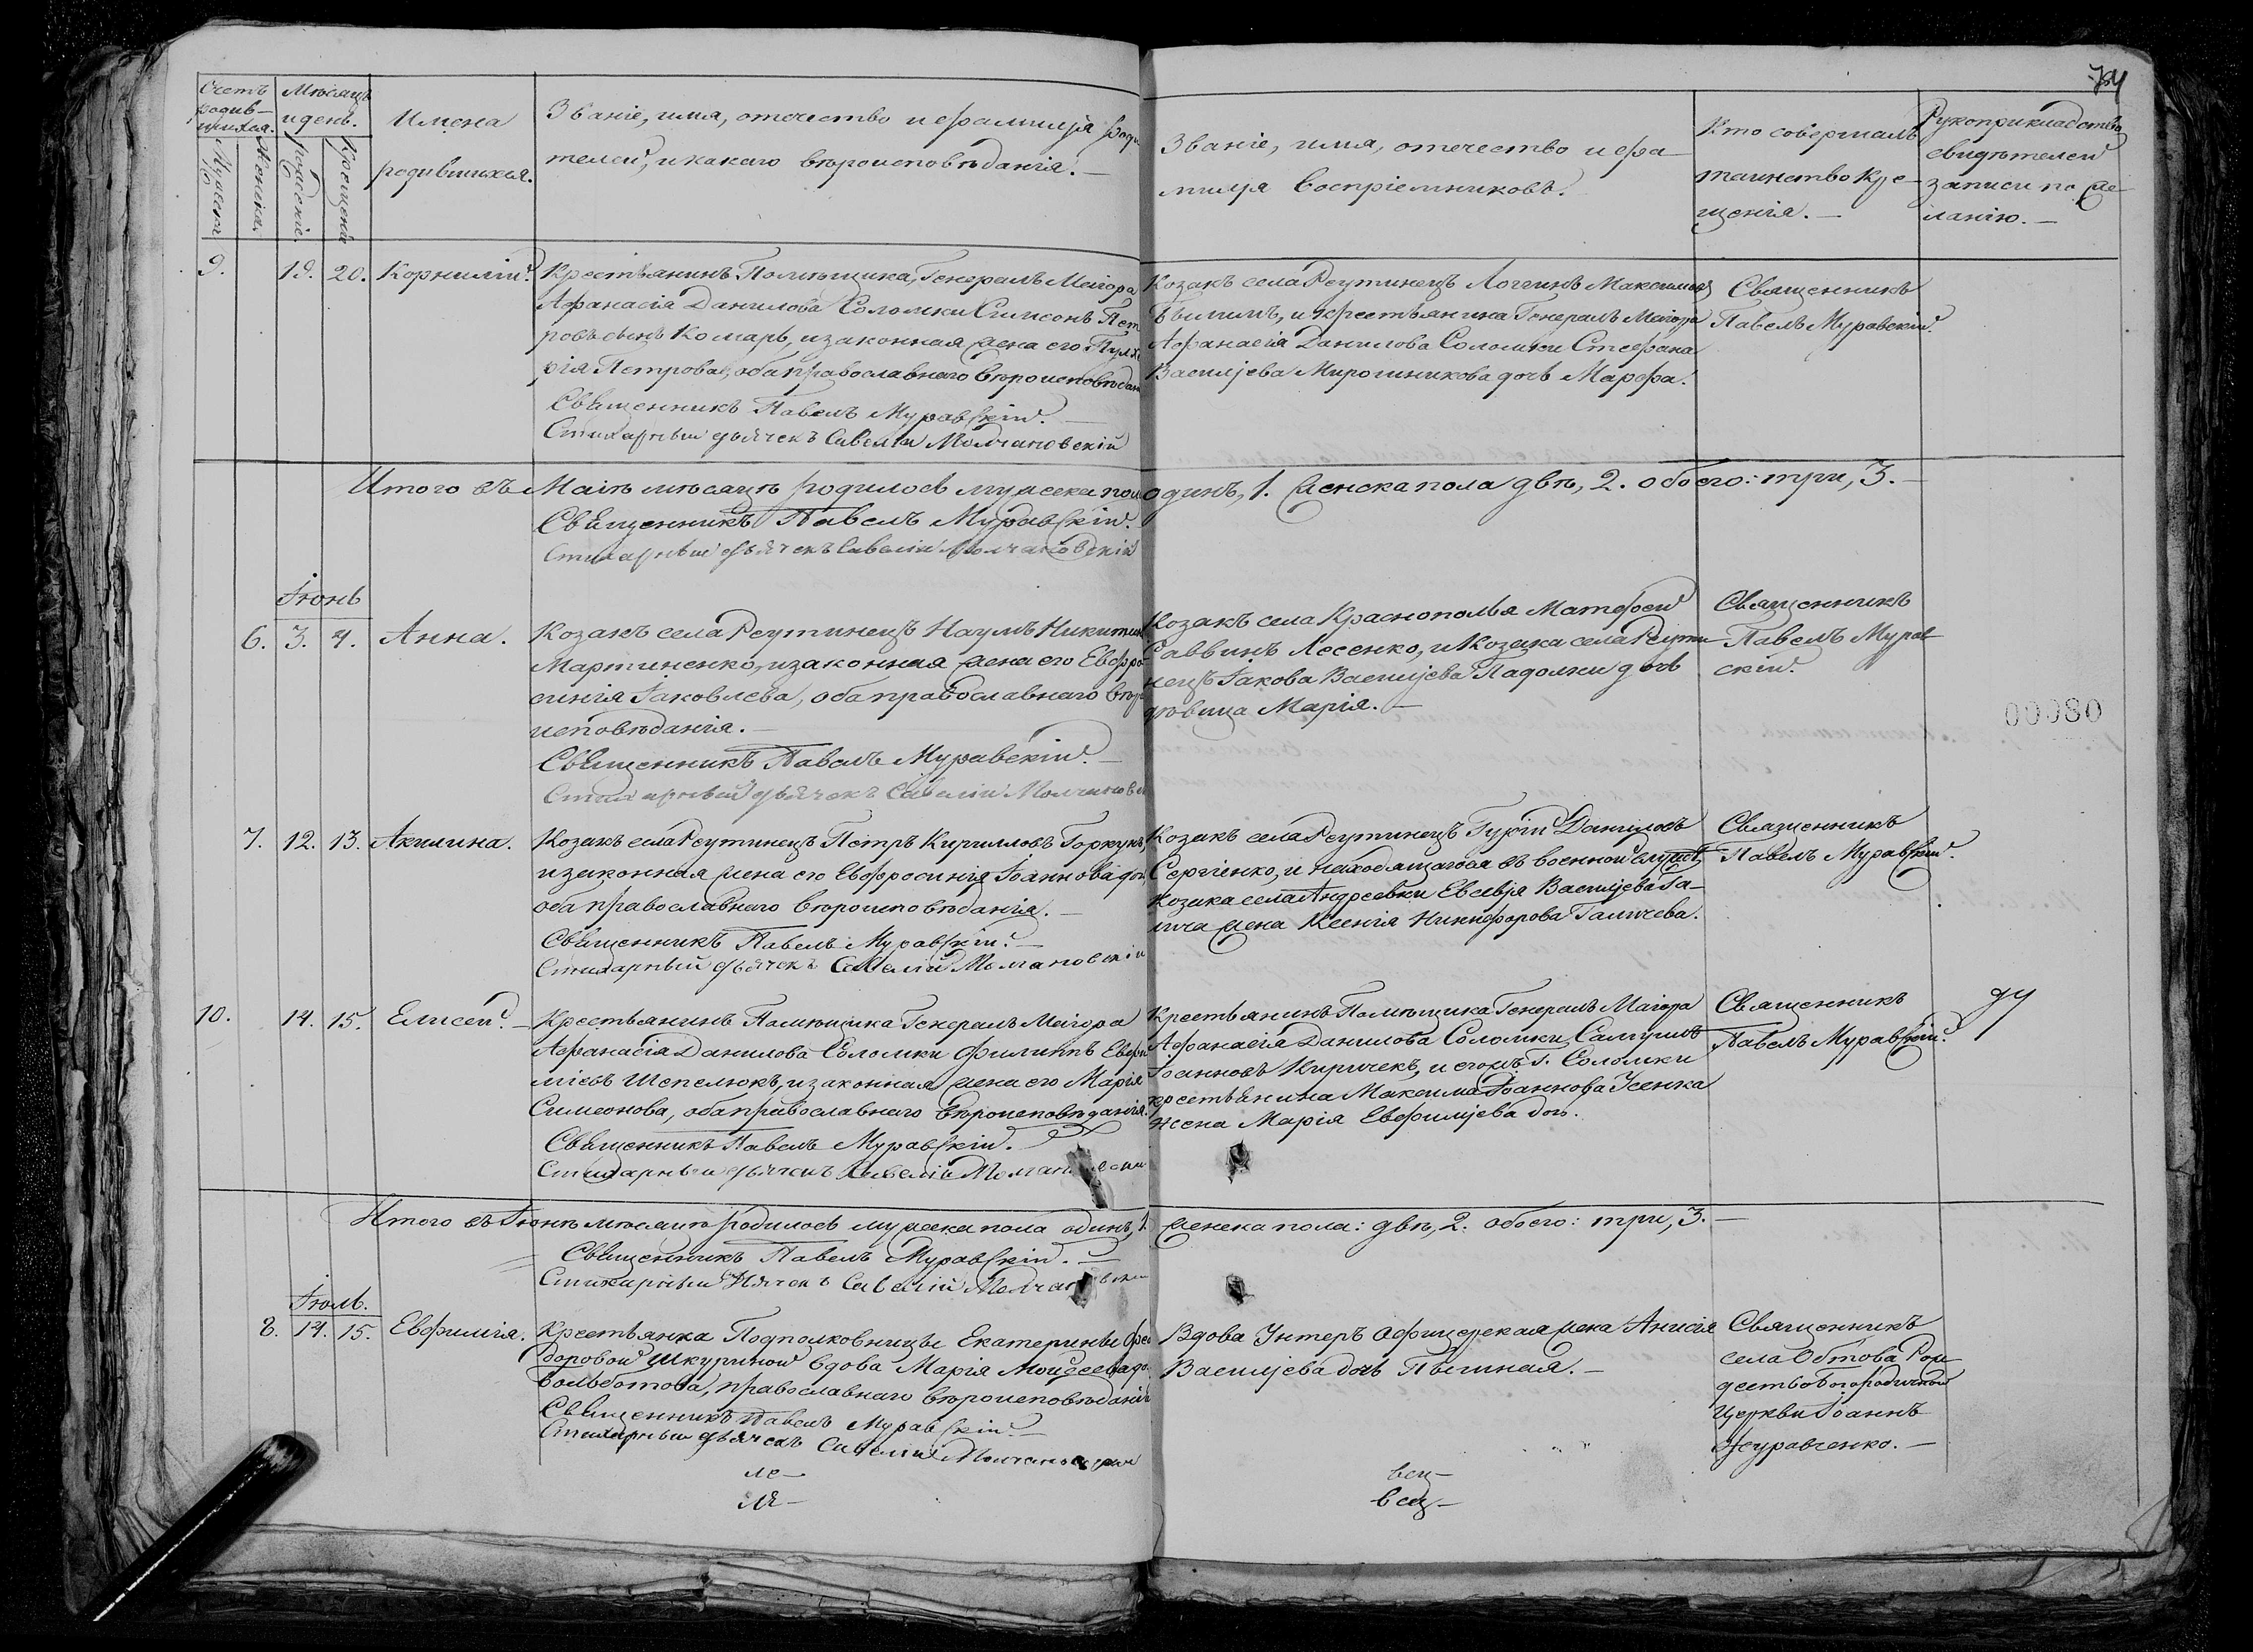 Счетъ родив-
шихся.
Мѣсяцъ
и день.
Имена
родившихся.
Званіе, имя, отечество и фамилія роди
телей, и какаго вѣроисповѣданія.—
Мужеска
Женска.
рожденіе.
Крещеніе
Званіе, имя, отечество и фа-
милія Воспріемниковъ.
Кто совершалъ
таинство Кре-
щенія.—
Рукоприкладство
свидѣтелей
записи по же-
ланію.—
9. 19. 20. Корнилій.
Крестьянинъ Помѣщика, Генералъ Маіора
Афанасія Данилова Соломки Симеонъ Пет
ровъ сынъ Комарь, и законная жена его Пулхе
рія Петрова, оба православнаго вѣроисповѣдан
Священникъ Павелъ Муравскій.—
Стихарный дьячекъ Савелій Молчановскій
Козакъ села Реутинецъ Логгинъ Максимовъ
и крестьянина Генералъ Маіора
Афанасія Данилова Соломки Стефана
Василіева Мирошникова дочь Марфа.
Священникъ
Павелъ Муравскій.
Итого въ Маіѣ мѣсяцѣ родилось мужеска пол одинъ, 1. женска пола двѣ, 2. обоего: три, 3.—
Священникъ Павелъ Муравскій.
Стихарный дьячекъ Савелій Молчановскій
Іюнь
6. 3. 4. Анна.
Козакъ села Реутинецъ Наумъ Никитин
Мартиненко, и законная жена его Евфро-
синія Іаковлева, оба православнаго вѣро
исповѣданія.—
Священникъ Павелъ Муравскій.—
Стихарный дьячекъ Савелій Молчановск
Козакъ села Краснополья Матфей
Саввинъ Лесенко, и Козака села Реути-
нецъ Іакова Василіева Падолки дочь
дѣвица Марія.—
Священникъ
Павелъ Мурав
скій.
00080
7. 12. 13. Акилина.
Козакъ села Реутинецъ Петръ Кирилловъ Горкунъ,
и законная жена его Евфросинія Іоаннова доч,
оба православнаго вѣроисповѣданія.—
Священникъ Павелъ Муравскій.—
Стихарный дьячекъ Савелій Молчановскій
Козакъ села Реутинецъ Гурій Даниловъ
Сергіенко, и находящагося въ военной службѣ
Козака села Андреевки Евсевія Василіева Га-
лича жена Ксенія Никифорова Галичева.
Священникъ
Павелъ Муравскій.
10. 14. 15. Елисей.—
Крестьянинъ Помѣщика Генералъ Маіора
Афанасія Данилова Соломки Филиппъ Евфи
міевъ Шепелюкъ, и законная жена его Марія
Симеонова, оба православнаго вѣроисповѣданія.
Священникъ Павелъ Муравскій.—
Стихарный дьячекъ Савелій Молчановскій
Крестьянинъ Помѣщика Генералъ Маіора
Афанасія Данилова Соломки Самуилъ
Іоанновъ Киричекъ, и егожъ Г. Соломки
крестьянина Максима Іоаннова Усенка
жена Марія Евфиміева дочь.
Священникъ
Павелъ Муравскій.
Итого въ Іюнѣ мѣсяцѣ родилось мужеска пола одинъ, 1. женска пола: двѣ, 2. обоего: три, 3.—
Священникъ Павелъ Муравскій.—
Стихарный дьячекъ Савелій Молчановскій
Іюль.
8. 14. 15. Евфимія.
Крестьянка Подполковницы Екатерины Фео
доровой Шкуриной вдова Марія Мойсеева до
православнаго вѣроисповѣданія
Священникъ Павелъ Муравскій.—
Стихарный дьячекъ Савелій Молчановскій
Вдова Унтеръ Офицерская жена Анисія
Василіева дочь Пышная.—
Священникъ
села Обтова Рож-
дество Богородичной
Церкви Іоаннъ
Журавченко.—
ле-
ля-
вец-
вец-